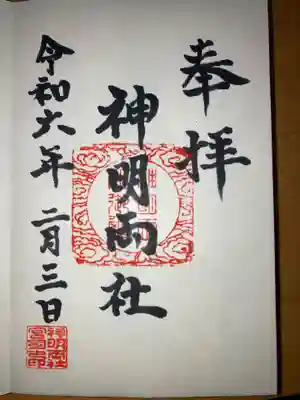 奉拝
神明両社
令和六年 二月三日